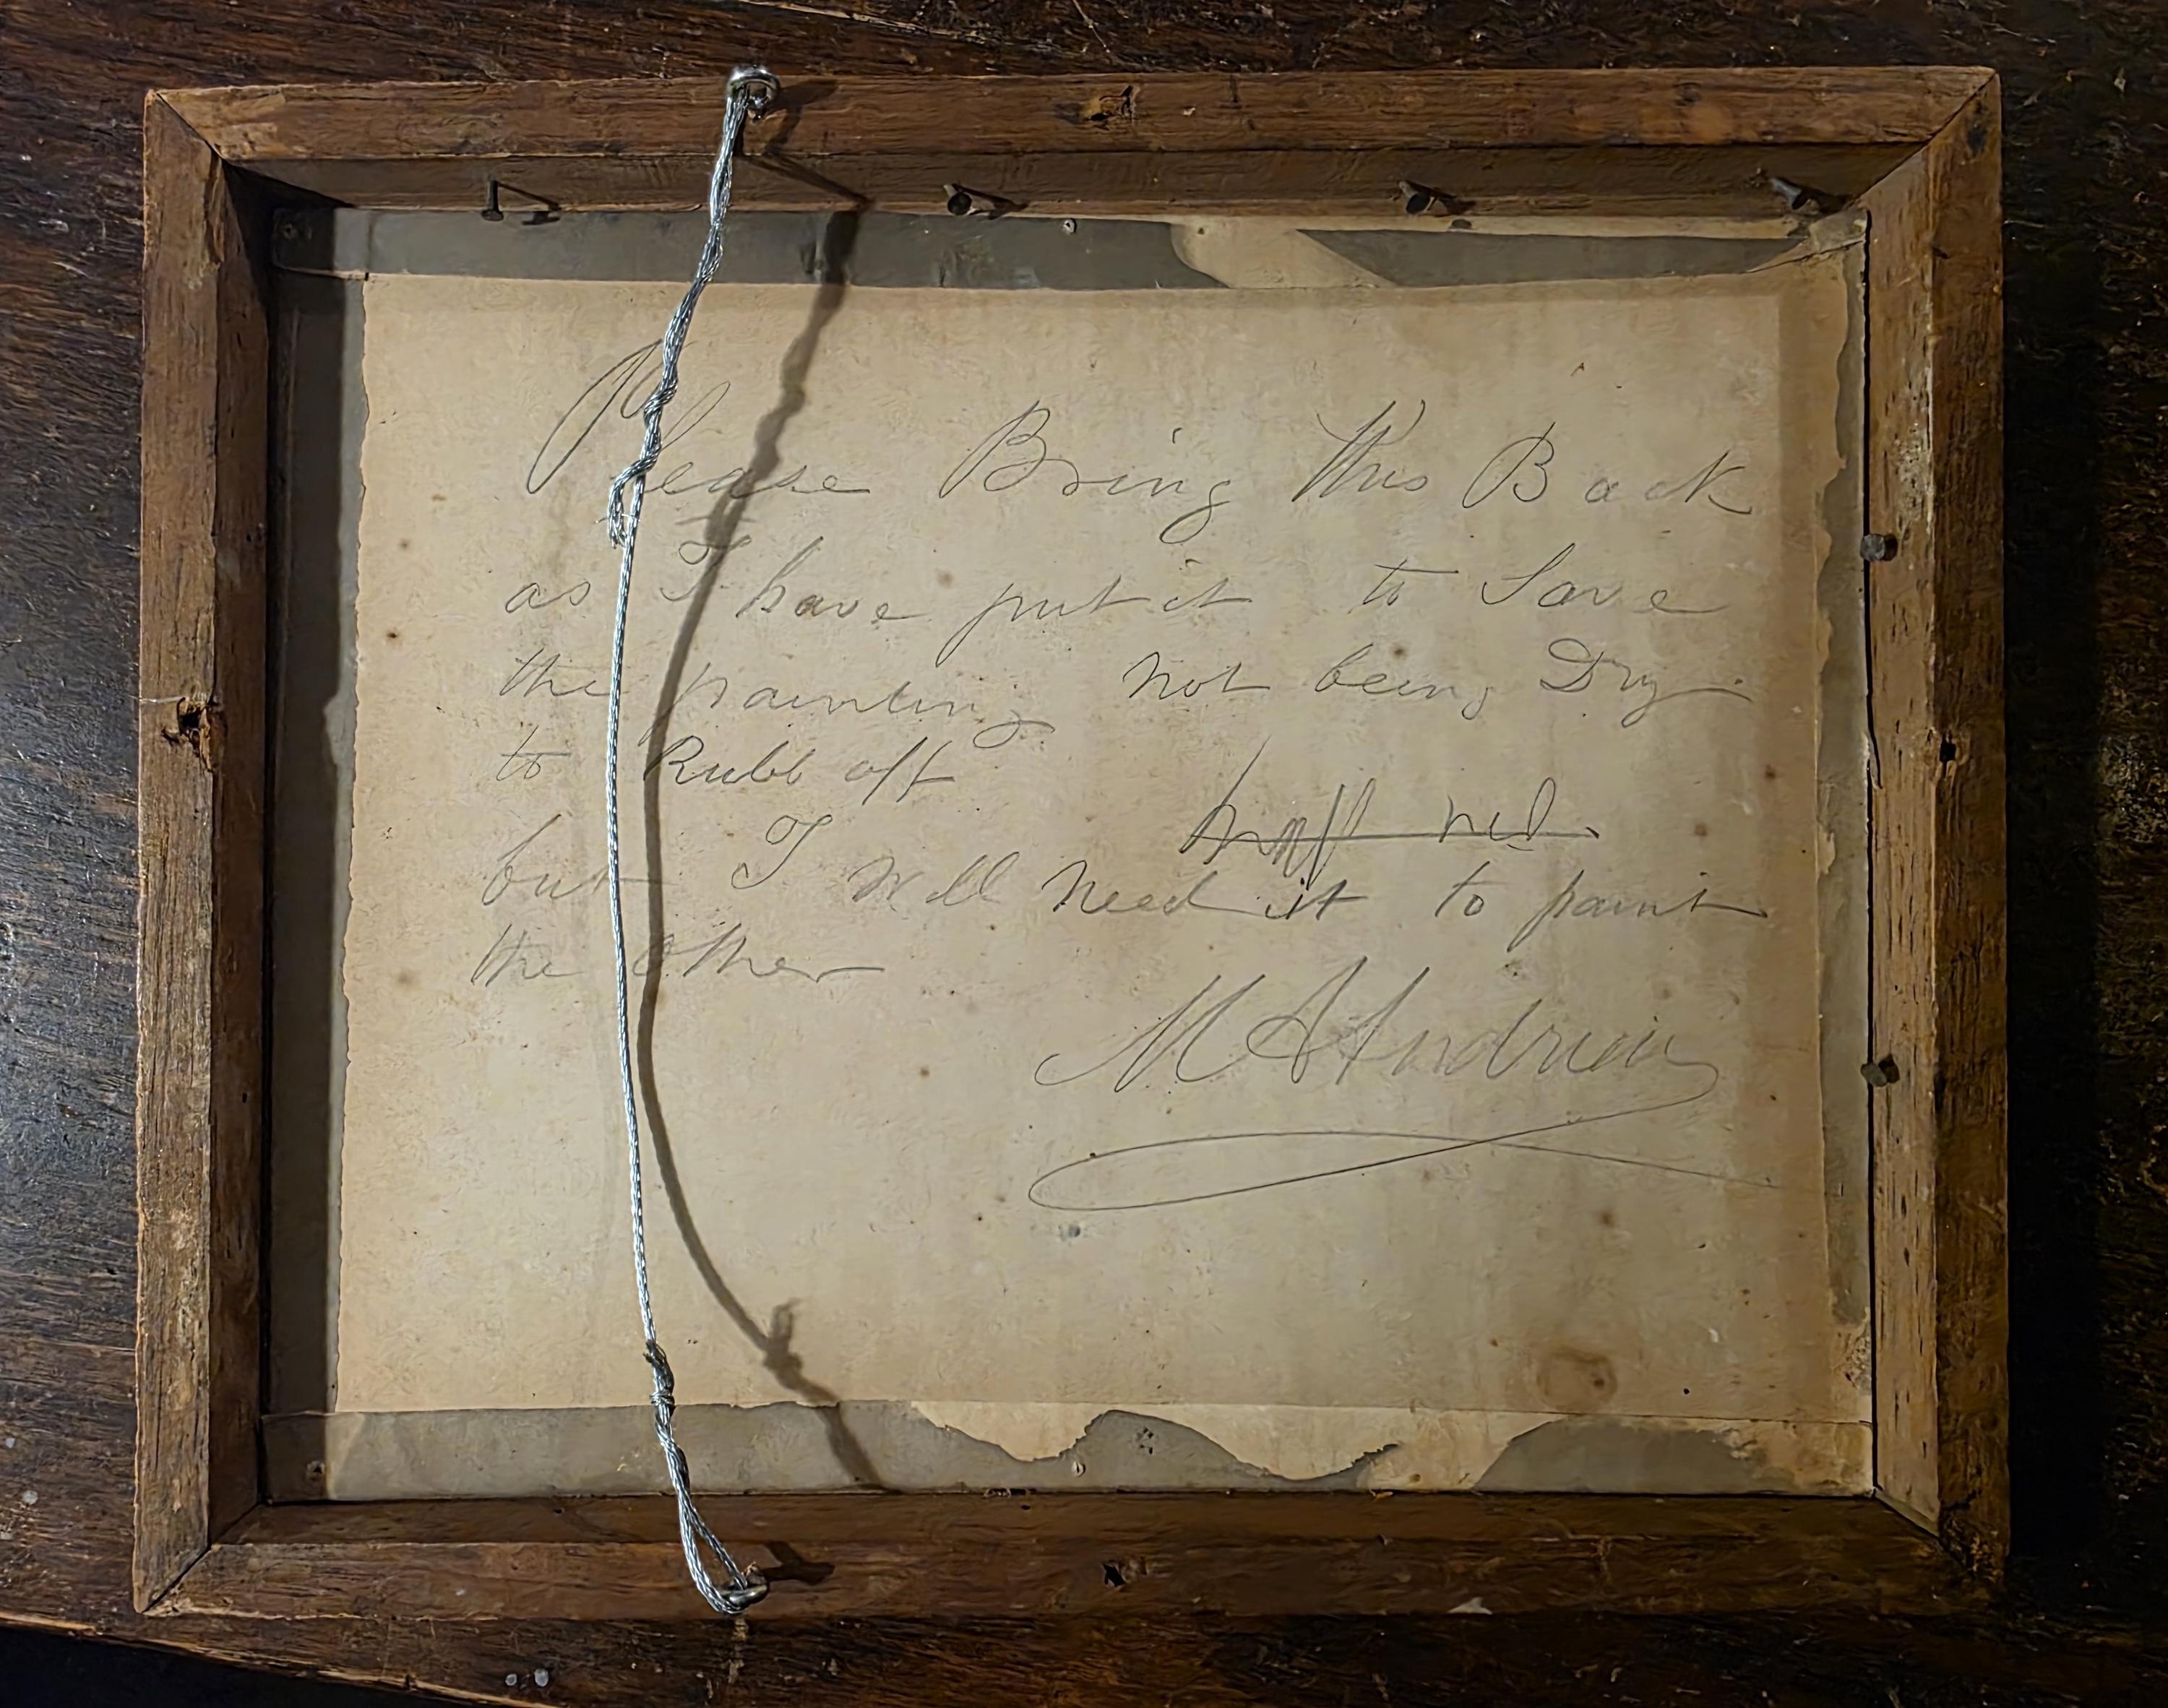 Please Bring this Back
as I have put it to Save
the painting not being Dry
to Rubb off
but I will need it to paint
the other
M A Andrews